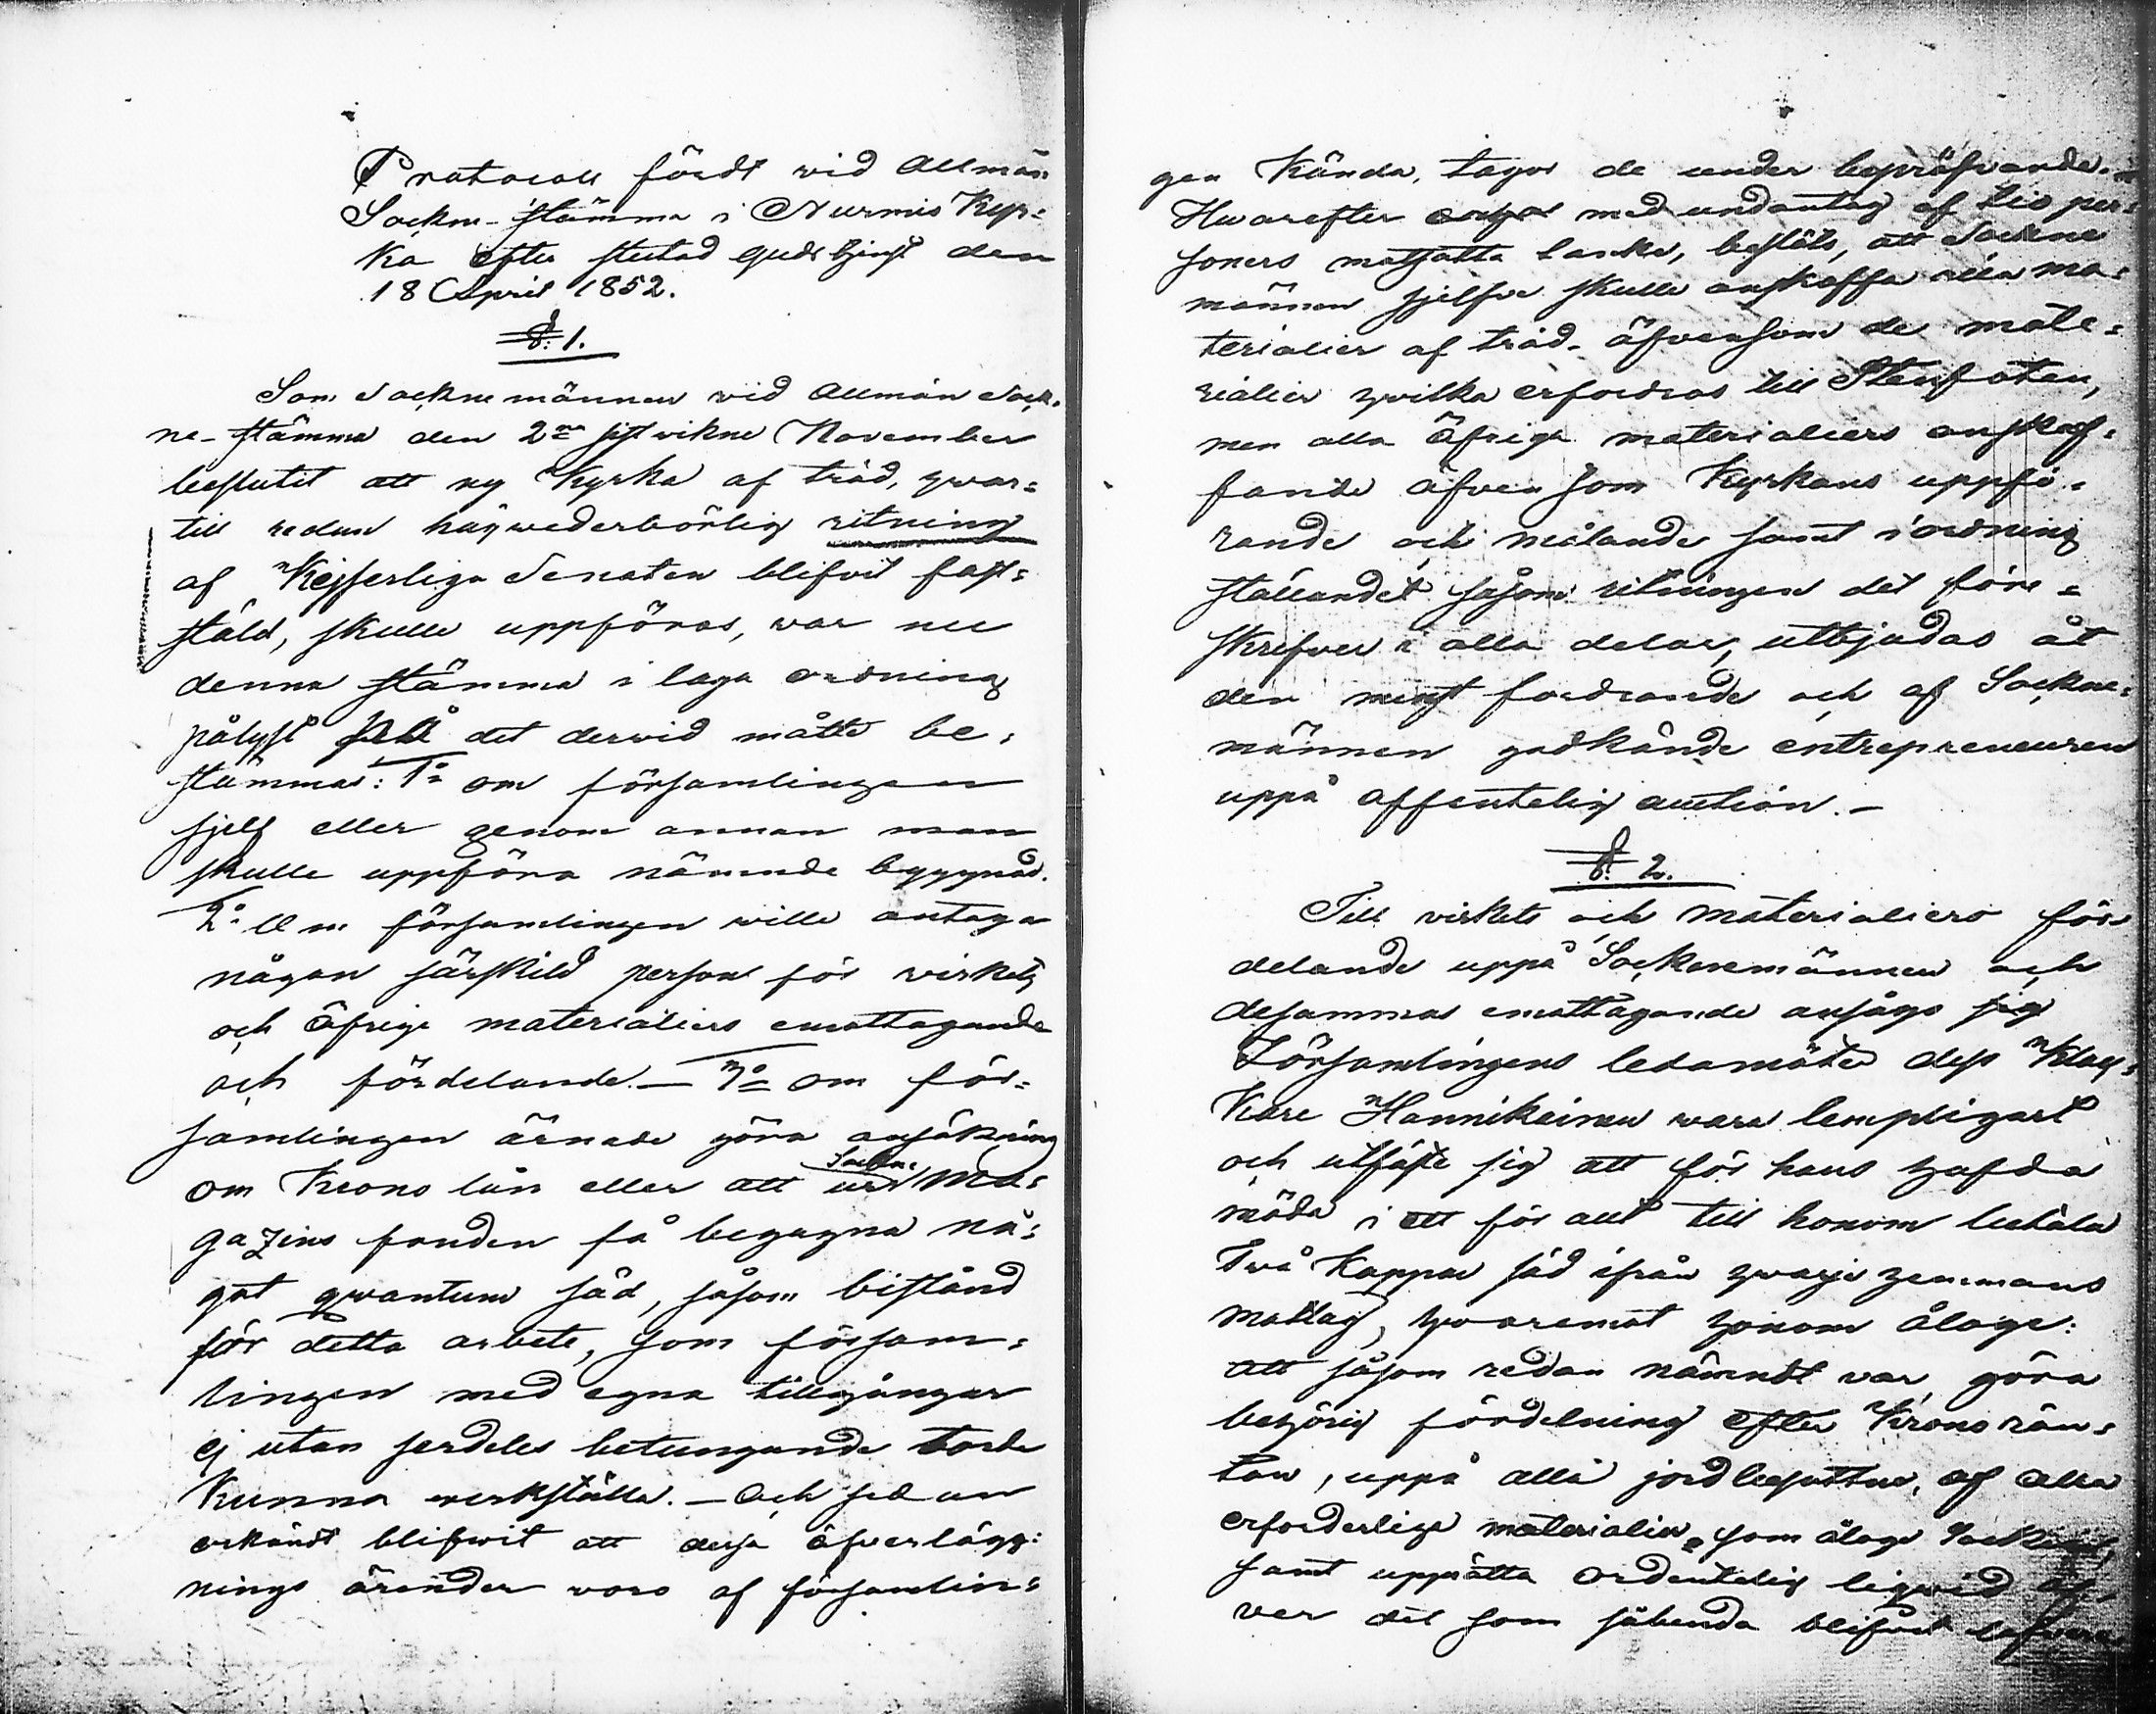 Protocoll fördt wid Allmän
Sockne-stämma i Nurmis Kyr=
ka efter slutad Gudstjenst den
18 April 1852.
§. 1.
Som Socknemännen wid Allmän Sock=
ne-stämma den 2ne sistwikne November
beslutit att ny Kyrka af träd, hwar=
till redan högwederbörlig ritning
af Kejserliga Senaten blifvit fast=
stäld, skulle uppföras, war nu
denna stämma i laga ordning
pålyst på det dervid måtte be=
stämmas: 1o om församlingen
sjelf eller genom annan man
skulle uppföra nämnde byggnad.
2o Om församlingen wille antaga
någon särskild person för wirkets
och öfriga materialiers emottagande
och fördelande. — 3o om för=
samlingen ärnade göra ansökning
om Krono lån eller att ur Sockne Ma=
gazins fonden få begagna nå=
got qwantum säd, såsom bistånd
för detta arbete, som försam=
lingen med egna tillgångar
ej utan serdeles betungande torde
Kunna werkställa. — Och sedan
erkändt blifwit att dessa öfverlägg=
nings ärender woro af församlin=
gen Kända, togos de under bepröfvande.
Hwarefter med undantag af tio per=
soners motsatta tanke, beslöts, att Sockne
männen sjelfve skulle anskaffa alla ma=
terialier af träd, äfvensom de mate=
rialier hvilka erfordras till Stenfoten,
men alla öfriga materialiers anskaf=
fande äfven som Kyrkans uppfö=
rande och målande samt i ordning
ställandet såsom ritningen det före=
skrifver i alla delar, utbjudas åt
den minst fordrande och af Sockne=
männen godkände entrepreneuren
uppå offentelig auction. —
§. 2.
Till virkets och materialiers för
delande uppå Socknemännen och
desammas emottagande ansågs
Församlingens ledamöter dess Kloc=
kare Hannikainen wara lempligast
och utfäste sig att för hans hafda
möda i ett för allt till honom betala
Två Kappar säd ifrån hwarje hemmans
matlag, hwaremot honom ålåge:
att såsom redan nämndt var, göra
behörig fördelning efter Krono rän=
tan, uppå alla jordbesuttne, af alla
erforderlige materialier, som ålåge Socknen,
samt upprätta ordentelig liqwid öf=
ver det som sålunda blifvit